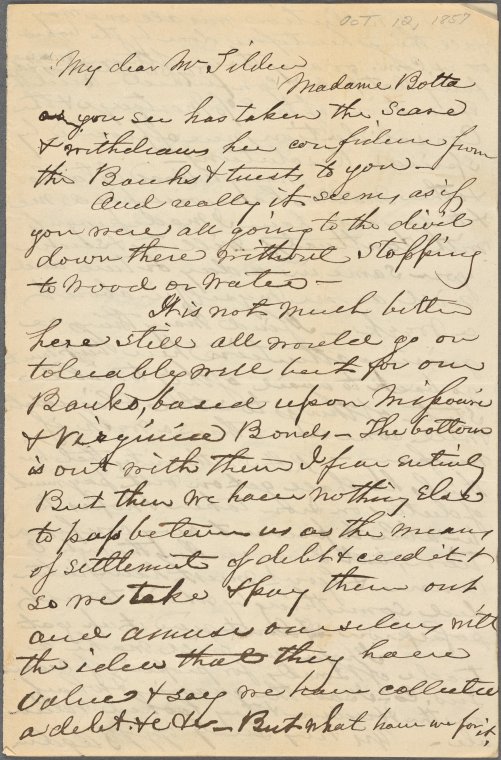 OCT. 12, 1857
My dear Mr Tilden
Madame Botta
as you see has taken the scare
& withdraws her confidence from
the Banks & trusts to you —
And really it seems as if
you were all going to the divil
down there without stopping
to wood or water —
It is not much better
here still all would go on
tolerably well but for our
Banks, based upon Missouri
& Virginia Bonds — The bottom
is out with them I fear entirely
But then we have nothing else
to pass between us as the means
of settlement of debt & credit &
so we take & pay them out
and amuse ourselves with
the idea that they have
value & say we have collected
a debt. &c &c — But what have we for it,